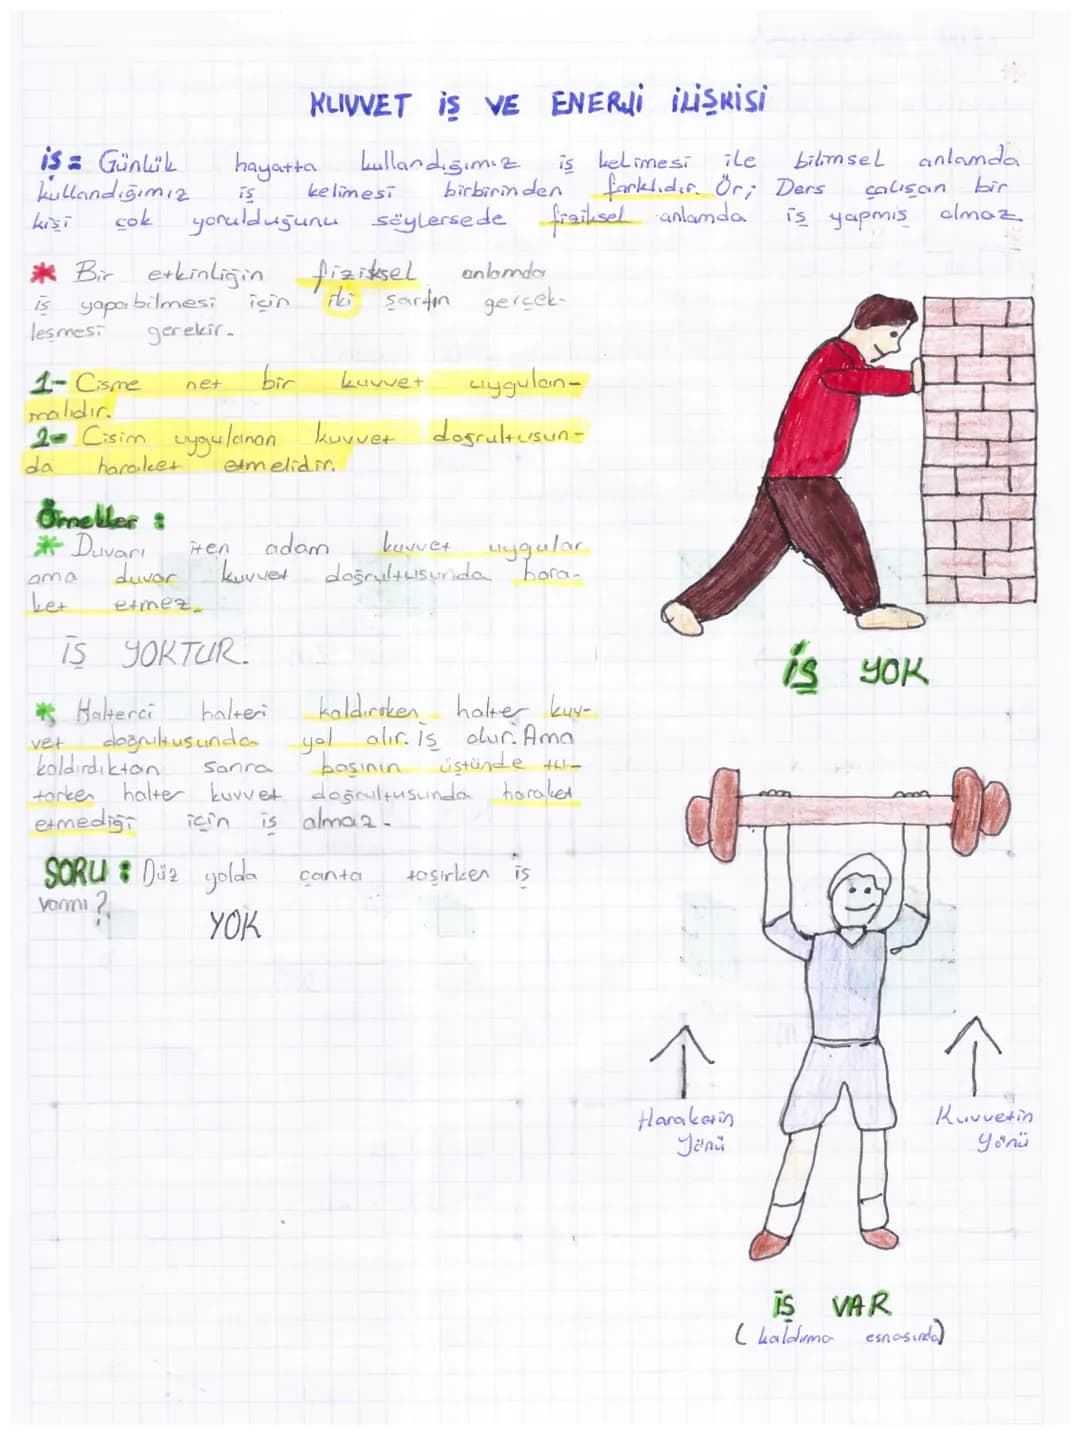 KUVVET İŞ VE ENERJİ İLİŞKİSİ
İŞ = Günlük hayatta kullandığımız iş kelimesi ile bilimsel anlamda
kullandığımız iş kelimesi birbirinden farklıdır. Ör; Ders çalışan bir
kişi çok yorulduğunu söylersede fiziksel anlamda iş yapmış olmaz.
* Bir etkinliğin fiziksel anlamda
iş yapabilmesi için iki şartın gerçek-
leşmesi gerekir.
1- Cisme net bir kuvvet uygulan-
malıdır.
2- Cisim uygulanan kuvvet doğrultusun-
da haraket etmelidir.
Örnekler :
* Duvarı iten adam kuvvet uygular
ama duvar kuvvet doğrultusunda hara-
ket etmez.
İŞ YOKTUR.
İŞ YOK
* Halterci halteri kaldırırken halter kuv-
vet doğrultusunda yol alır. İş olur. Ama
kaldırdıktan sonra başının üstünde tu-
tarken halter kuvvet doğrultusunda haraket
etmediği için iş olmaz.
SORU : Düz yolda çanta taşırken iş
varmı?
YOK
Haraketin
Yönü
Kuvvetin
Yönü
İŞ VAR
(kaldırma esnasında)